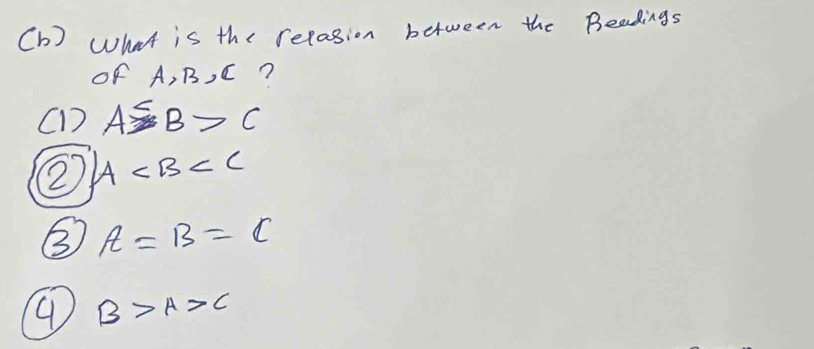 (b) what is the relasion between the Beadings
of A, B, C ?
(1) A < B > C
(2) A < B < C
(3) A = B = C
(4) B > A > C